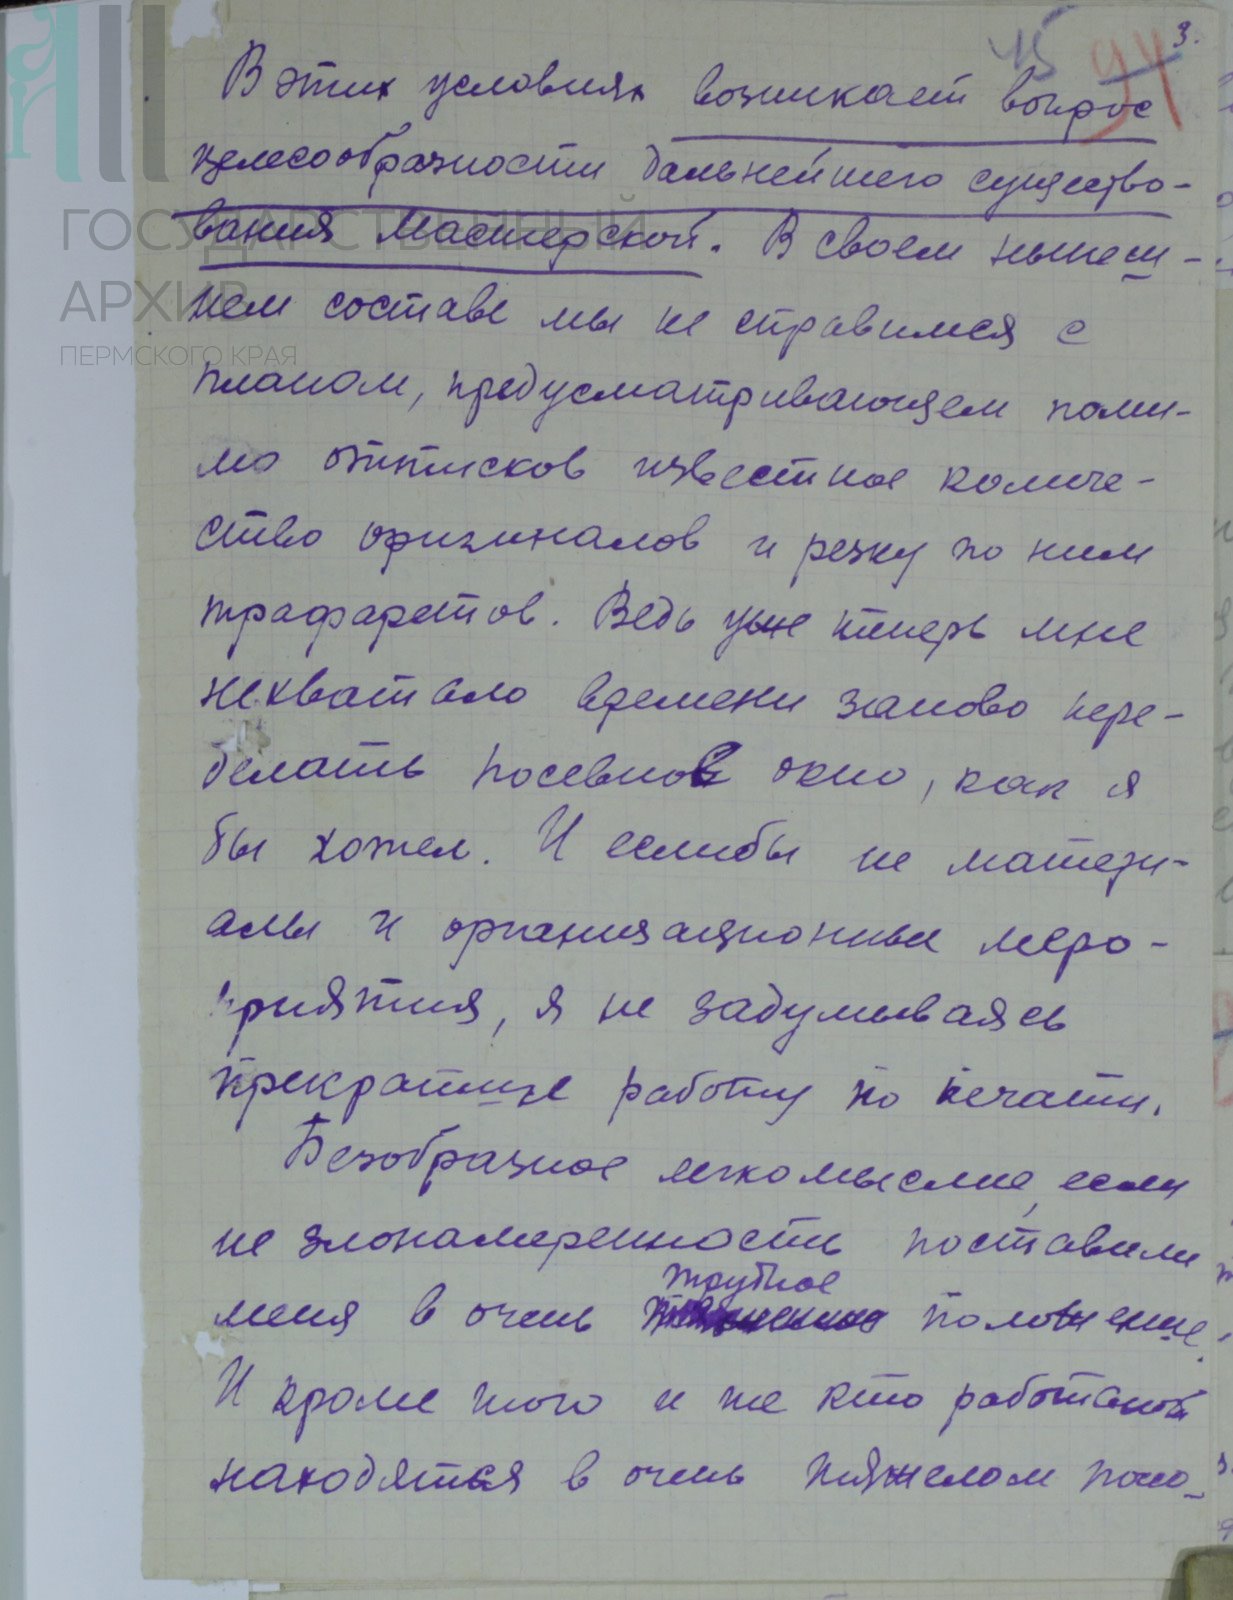 3.
15
94
В этих условиях возникает вопрос
целесообразности дальнейшего существо-
вания Мастерской. В своем нынеш-
нем составе мы не справимся с
планом, предусматривающем поми-
мо оттисков известное количе-
ство оригиналов и резку по ним
трафаретов. Ведь уже теперь мне
нехватало времени заново пере-
делать посевное окно, как я
бы хотел. И еслибы не матери-
алы и организационные меро-
приятия, я не задумываясь
прекратил работу по печати.
Безобразное легкомыслие, если
не злонамеренность поставили
трудное
меня в очень положение.
И кроме того и те кто работают
находятся в очень тяжелом поло-
ГОСУДАРСТВЕННЫЙ
АРХИВ
ПЕРМСКОГО КРАЯ